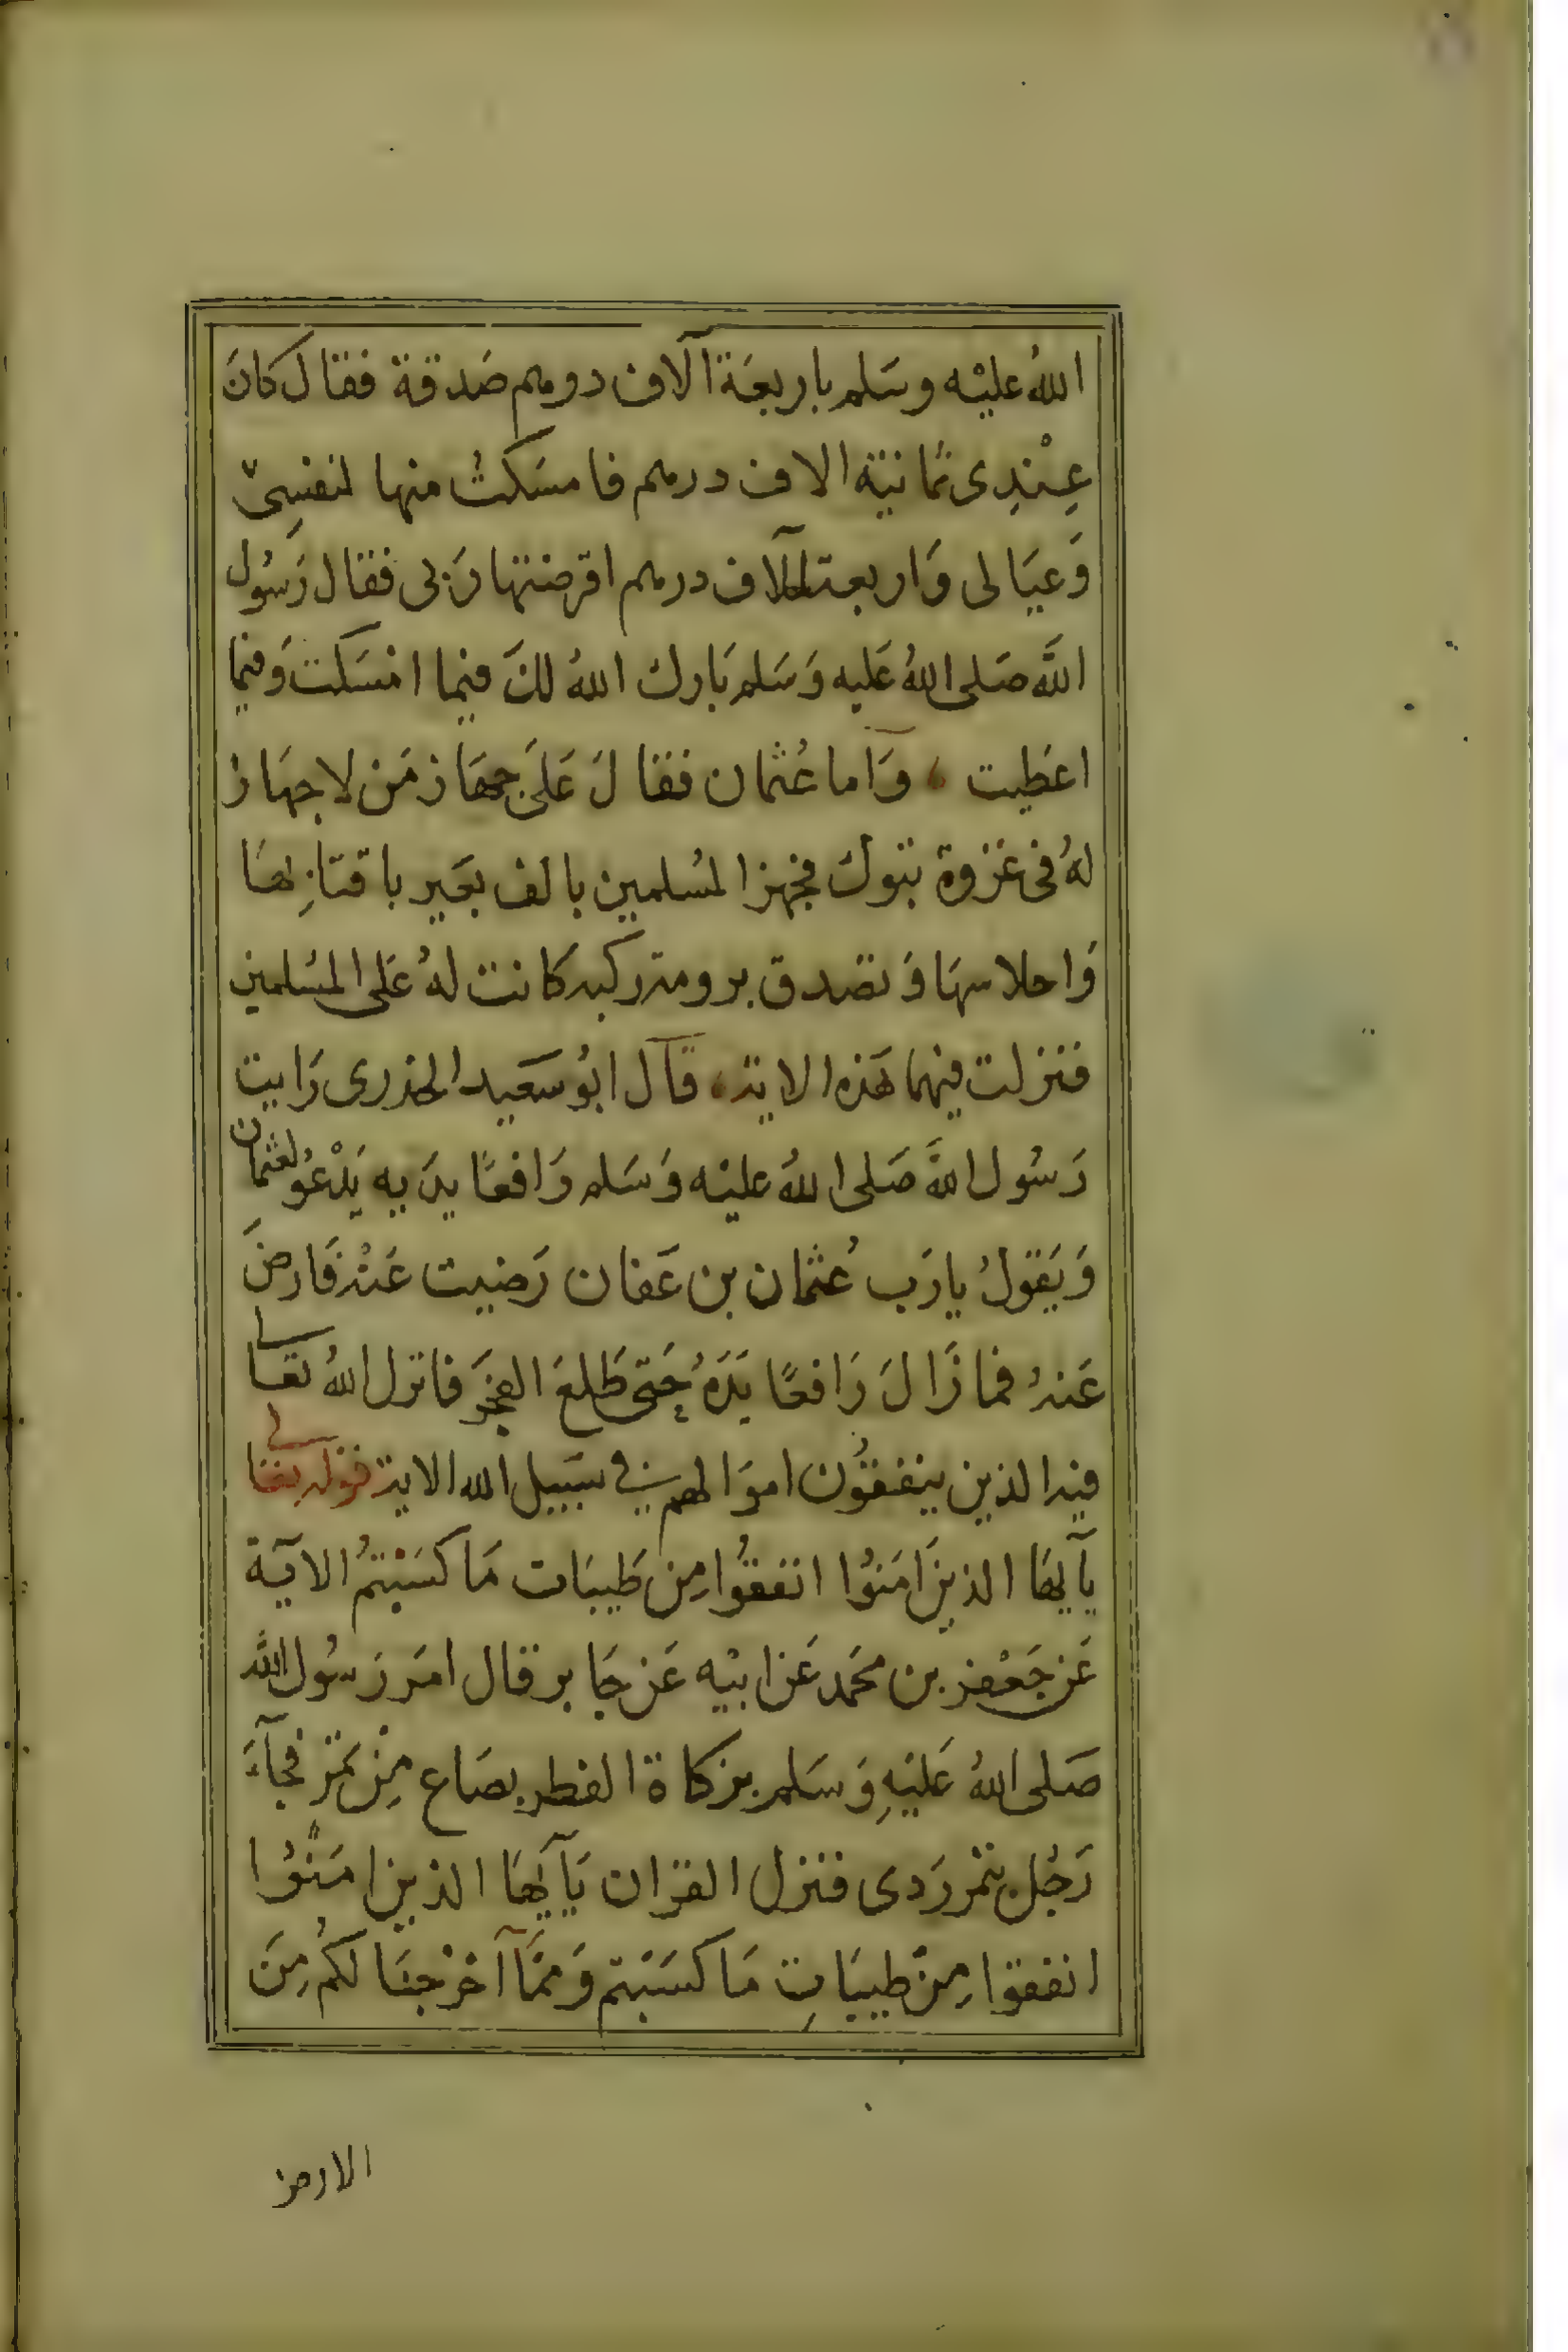 الله عليْه وسَلم باربعَة آلاف دومهم صَدقة فقال كانَ
عِنْدِى ثمانية الاف درهم فامسَكتُ منها لنفسِىّ
وَعيَالى وَاربعة آلاف درهم اقرضتها رَبى فقال رَسُول
اللَّه صَلى اللهُ عَليه وَسَلم بَارك اللهُ لكَ فيما امْسَكت وَفيما
اعطيت ، وَآما عُثمان فقالَ عَلىَ جهَاز مَن لا جهَاز
لهُ فى غزوة تبوك فجهز المسُلمين بالف بعَير باقتابِهَا
وَاحلاسهَا وَتصَدق برومة ركية كانت لهُ عَلى المسُلمين
فنزلت فيهما هَذه الاية ، قآل ابُو سَعيد الخدرى رَايت
رَسُول اللَّه صَلى اللهُ عليْه وَسَلم رَافعًا يدَيه يَدْعُو لعثمان
وَيَقولُ يارَب عُثمان بن عَفان رَضيت عَنْهُ فَارضَ
عَنهُ فما زَالَ رَافعًا يَدَهُ حَتى طَلعَ الفجَر فانزل اللهُ تعَالى
فيه الذين ينفقوُن اموَالهم فى سَبيل الله الاية قوله تعَالى
يآ ايهَا الذينَ امَنوُا انفقوُا مِن طَيبَات مَا كسَبْتمُ الآيَة
عَن جَعْفر بن محَمد عَن ابيْه عَن جَابر قال امَر رَسُول الله
صَلى اللهُ عَليْهِ وَسَلم بزكاة الفطر بصَاع مِنْ تمَر فجآءَ
رَجُل بتمر رَدى فنزل القرَان يَآ ايهَا الذين امَنُوُا
انفقوا مِنْ طيبَاتِ مَا كسَبْتم وَممَّا آخرَجْنَا لكمُ مِنَ
الارض